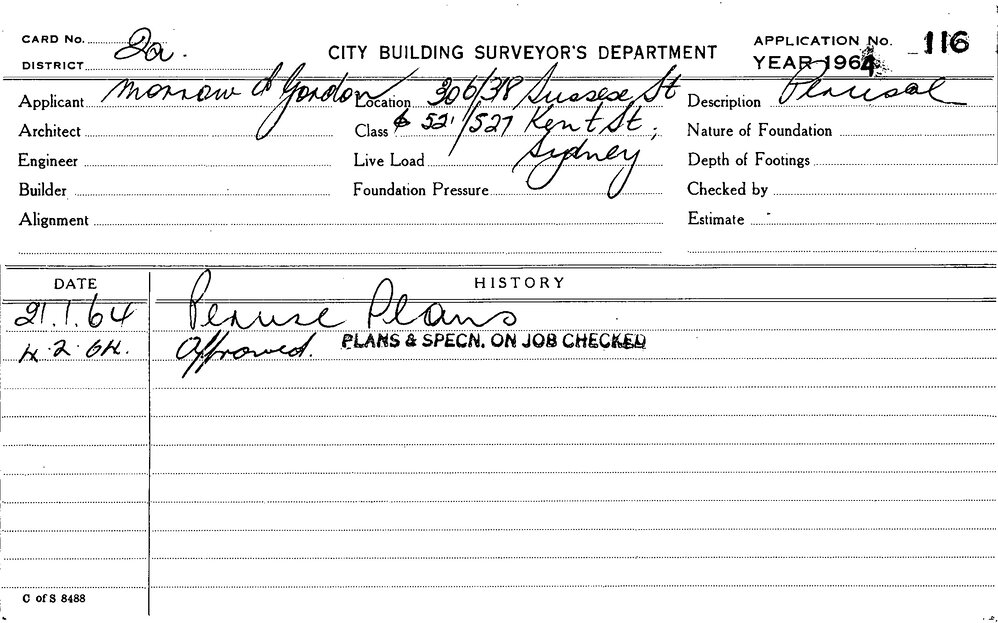 CARD No. 2a.
DISTRICT
CITY BUILDING SURVEYOR'S DEPARTMENT
APPLICATION No. 116
YEAR 1964
Applicant Morrow & Gordon
Location 306/318 Sussex St
Description Perusal
Architect
Class & 521/527 Kent St,
Nature of Foundation
Engineer
Live Load Sydney
Depth of Footings
Builder
Foundation Pressure
Checked by
Alignment
Estimate
DATE HISTORY
21.1.64 Peruse Plans
4.2.64. Approved. PLANS & SPECN. ON JOB CHECKED
C of S 8488